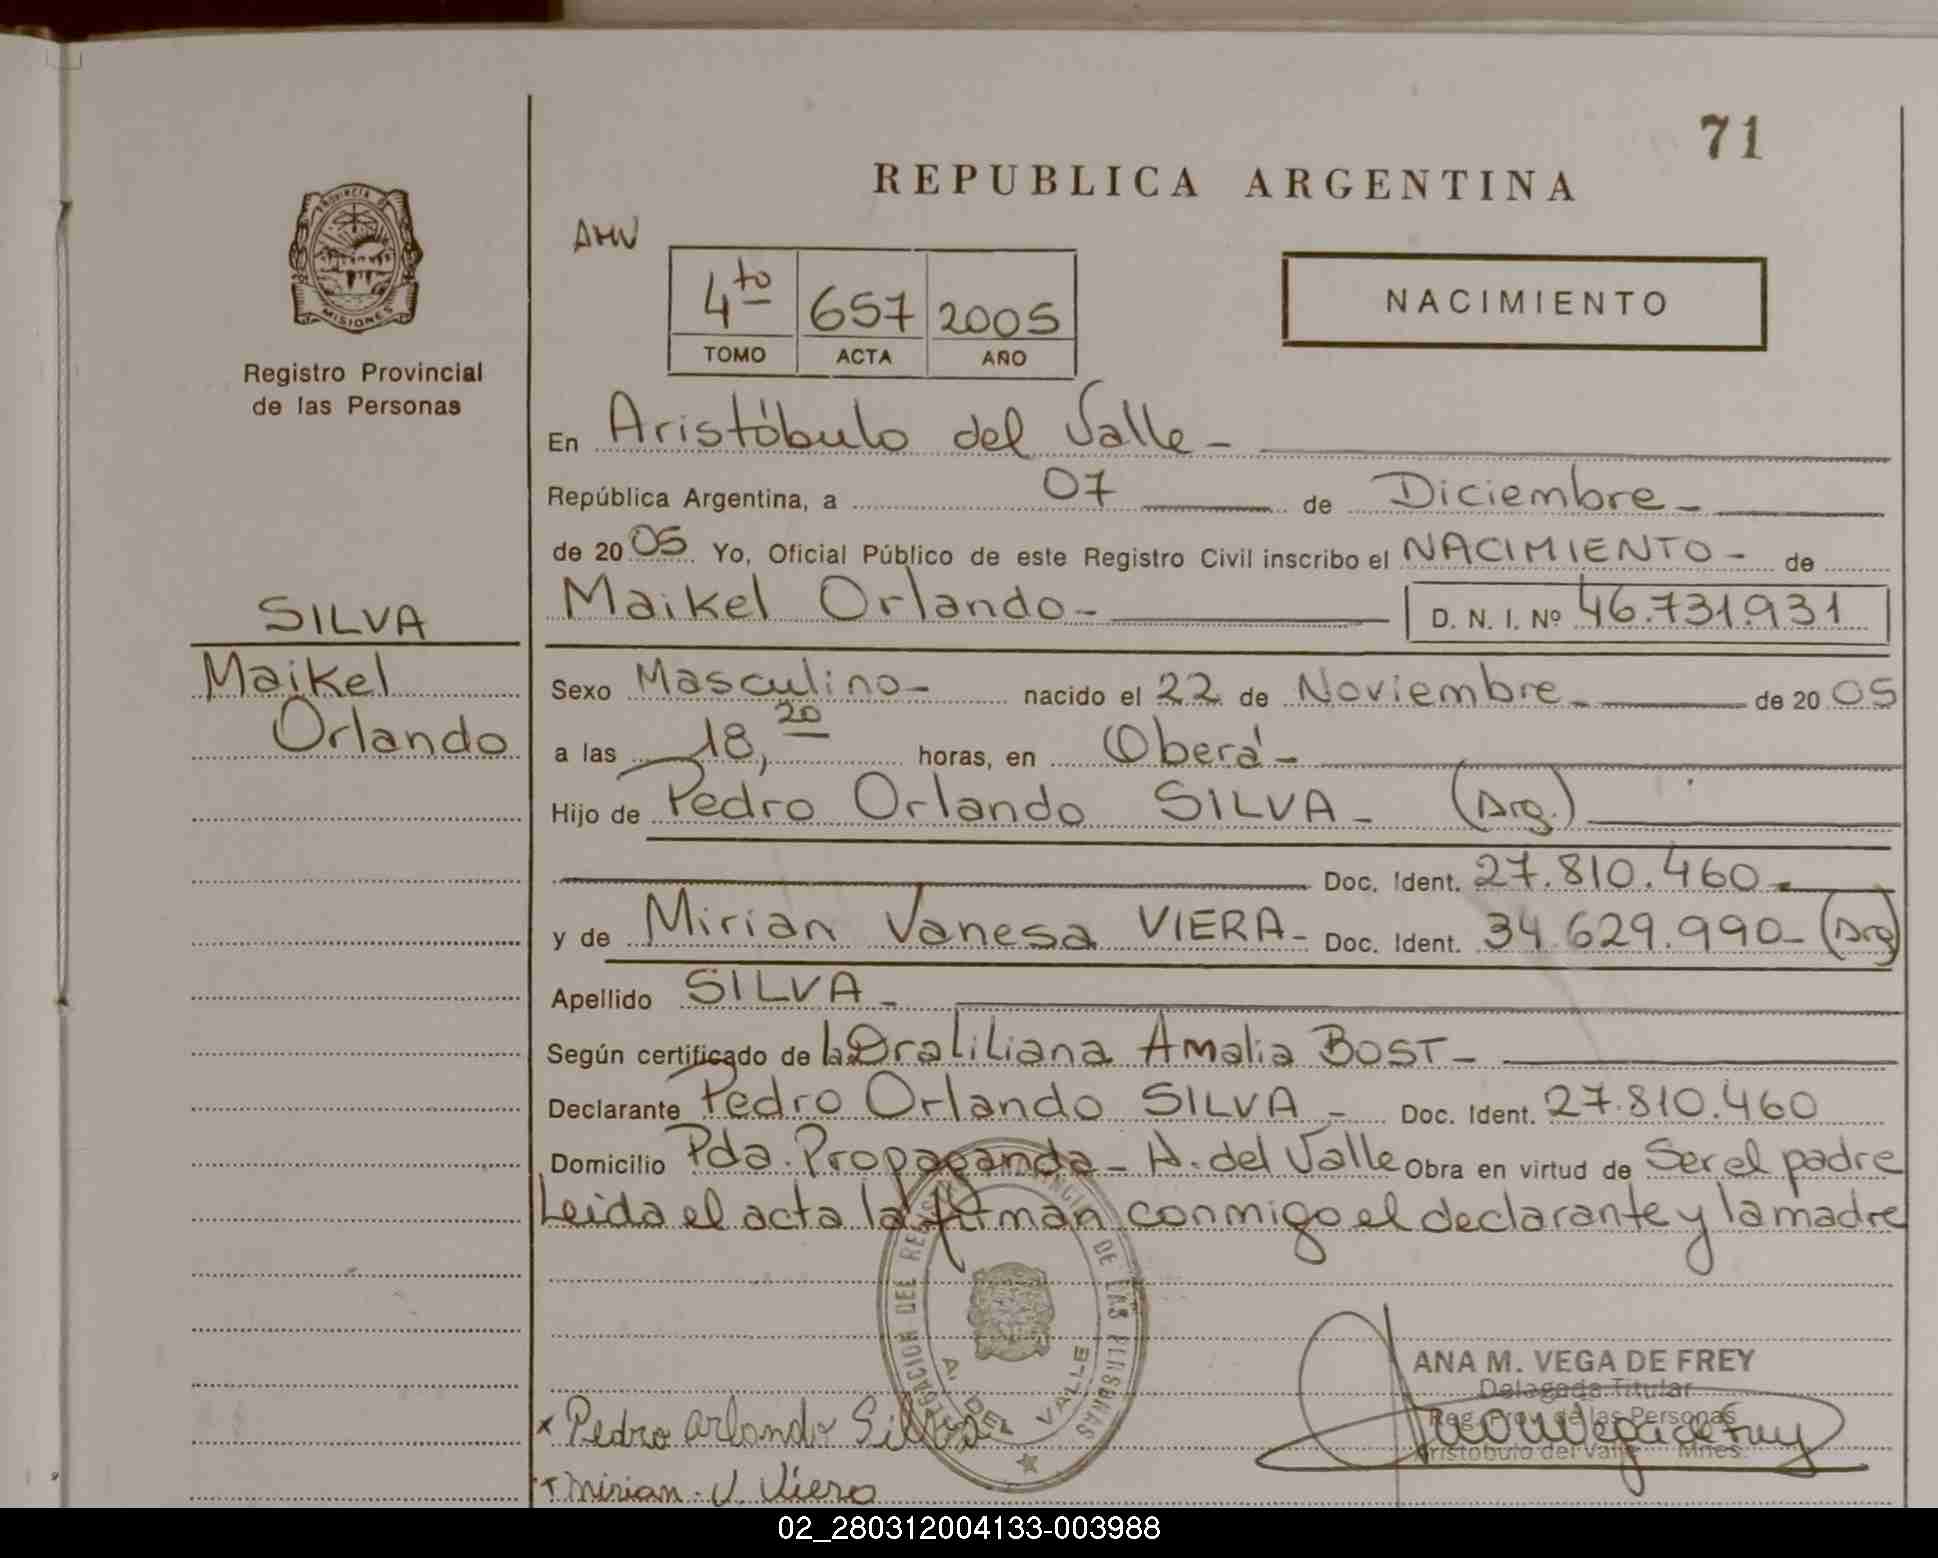 71
REPUBLICA ARGENTINA
PROVINCIA DE
MISIONES
Registro Provincial
de las Personas
AHV
4to 657 2005
TOMO ACTA AÑO
NACIMIENTO
En Aristóbulo del Valle -
República Argentina, a 07 de Diciembre -
de 2005 Yo, Oficial Público de este Registro Civil inscribo el NACIMIENTO - de
Maikel Orlando - D. N. I. Nº 46.731.931
SILVA
Maikel
Orlando
Sexo Masculino - nacido el 22 de Noviembre - de 2005
a las 18,20 horas, en Oberá -
Hijo de Pedro Orlando SILVA - (Arg.)
Doc. Ident. 27.810.460 -
y de Mirian Vanesa VIERA - Doc. Ident. 34.629.990 - (Arg)
Apellido SILVA -
Según certificado de la Dra Liliana Amalia BOST -
Declarante Pedro Orlando SILVA - Doc. Ident. 27.810.460
Domicilio Pda. Propaganda - A. del Valle Obra en virtud de Ser el padre
Leida el acta la firman conmigo el declarante y la madre
DE LAS PERSONAS
A. DEL VALLE
ANA M. VEGA DE FREY
Delegada Titular
Reg. Prov. de las Personas
Aristobulo del Valle - Mnes.
x Pedro Orlando Silva
x Mirian. V. Viera
02_280312004133-003988